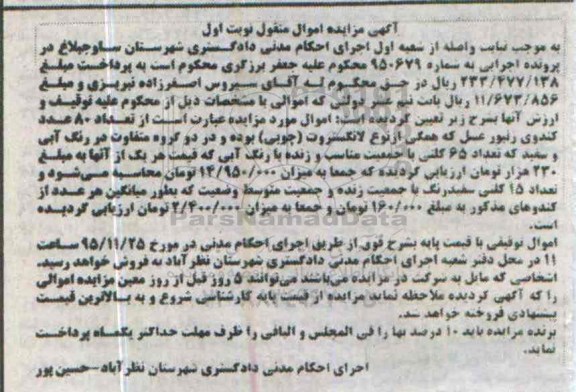 آگهی مزایده اموال منقول نوبت اول
به موجب نیابت واصله از شعبه اول اجرای احکام مدنی دادگستری شهرستان ساوجبلاغ در
پرونده اجرایی به شماره ۹۵۰۶۷۹ محکوم علیه جعفر برزگری محکوم است به پرداخت مبلغ
۲۳۳/۴۷۷/۱۳۸ ریال در حق محکوم له آقای سیروس اصغرزاده تبریزی و مبلغ
۱۱/۶۷۳/۸۵۶ ریال بابت نیم عشر دولتی که اموالی با مشخصات ذیل از محکوم علیه توقیف و
ارزش آنها بشرح زیر تعیین گردیده است: اموال مورد مزایده عبارت است از تعداد ۸۰ عدد
کندوی زنبور عسل که همگی ازنوع لانگستروت (چوبی) بوده و در دو گروه متفاوت در رنگ آبی
و سفید که تعداد ۶۵ کلنی با جمعیت مناسب و زنده با رنگ آبی که قیمت هر یک از آنها به مبلغ
۲۳۰ هزار تومان ارزیابی گردیده که جمعا به میزان ۱۴/۹۵۰/۰۰۰ تومان محاسبه می‌شود و
تعداد ۱۵ کلنی سفیدرنگ با جمعیت زنده و جمعیت متوسط وضعیت که بطور میانگین هر عدد از
کندوهای مذکور به مبلغ ۱۶۰/۰۰۰ تومان و جمعا به میزان ۲/۴۰۰/۰۰۰ تومان ارزیابی گردیده
است.
اموال توقیفی با قیمت پایه بشرح فوق از طریق اجرای احکام مدنی در مورخ ۹۵/۱۱/۲۵ ساعت
۱۱ در محل دفتر شعبه اجرای احکام مدنی دادگستری شهرستان نظرآباد به فروش خواهد رسید.
اشخاصی که مایل به شرکت در مزایده می‌باشند می‌توانند ۵ روز قبل از روز معین مزایده اموالی
را که آگهی گردیده ملاحظه نماید مزایده از قیمت پایه کارشناسی شروع و به بالاترین قیمت
پیشنهادی فروخته خواهد شد.
برنده مزایده باید ۱۰ درصد بها را فی المجلس و الباقی را ظرف مهلت حداکثر یکماه پرداخت
نماید.
اجرای احکام مدنی دادگستری شهرستان نظرآباد-حسین پور
ParsNamadData